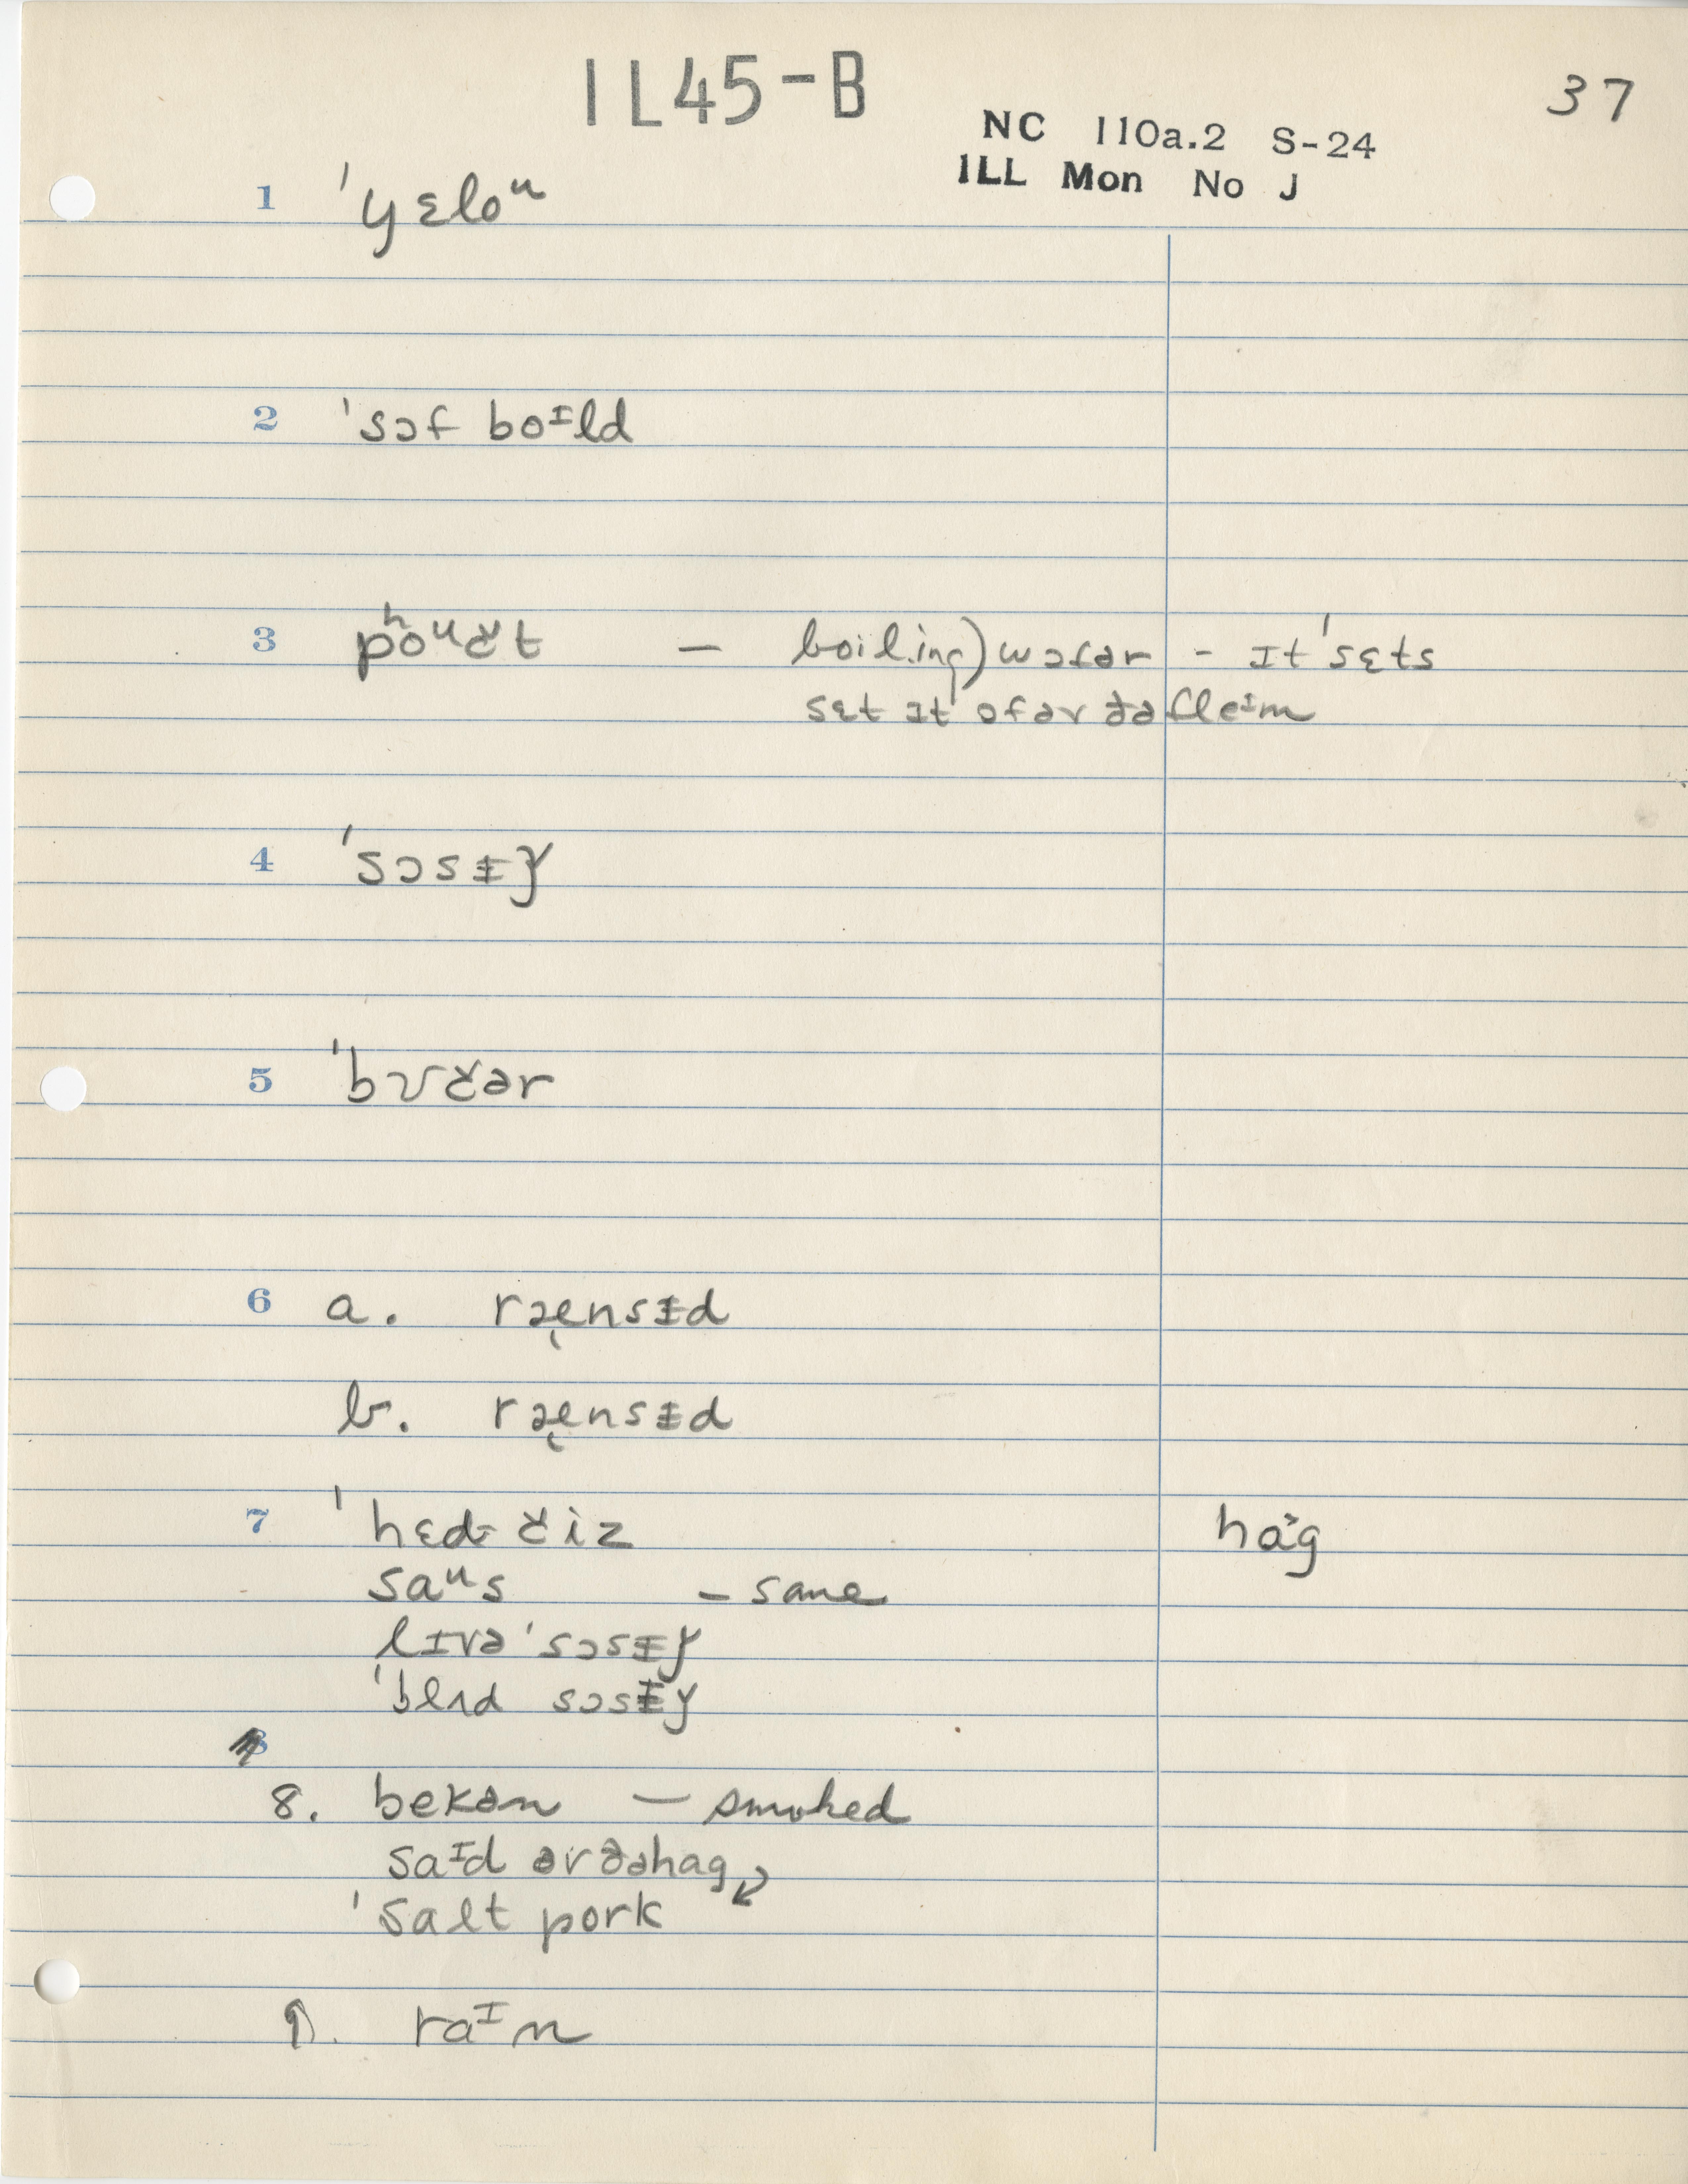 IL45-B
37
NC 110a.2 S-24
ILL Mon No J
1 ˈyɛloᵘ
2 ˈsɔf boᶦld
3 pʰoᵘɚt — boiling) wɔtər - ɪt ˈsɛts
sɛt ɪt ɔfər ðə fleᶦm
4 ˈsɔsɨǯ
5 ˈbʊčər
6 a. rænsɨd
b. rænsɨd
7 ˈhɛd čiz hag
saᵘs — same
lɪvə ˈsɔsɨǯ
ˈblʌd sɔsɨǯ
8
8. bekən — smoked
saᶦd ər ðə hag
ˈsalt pork
9. raᶦn